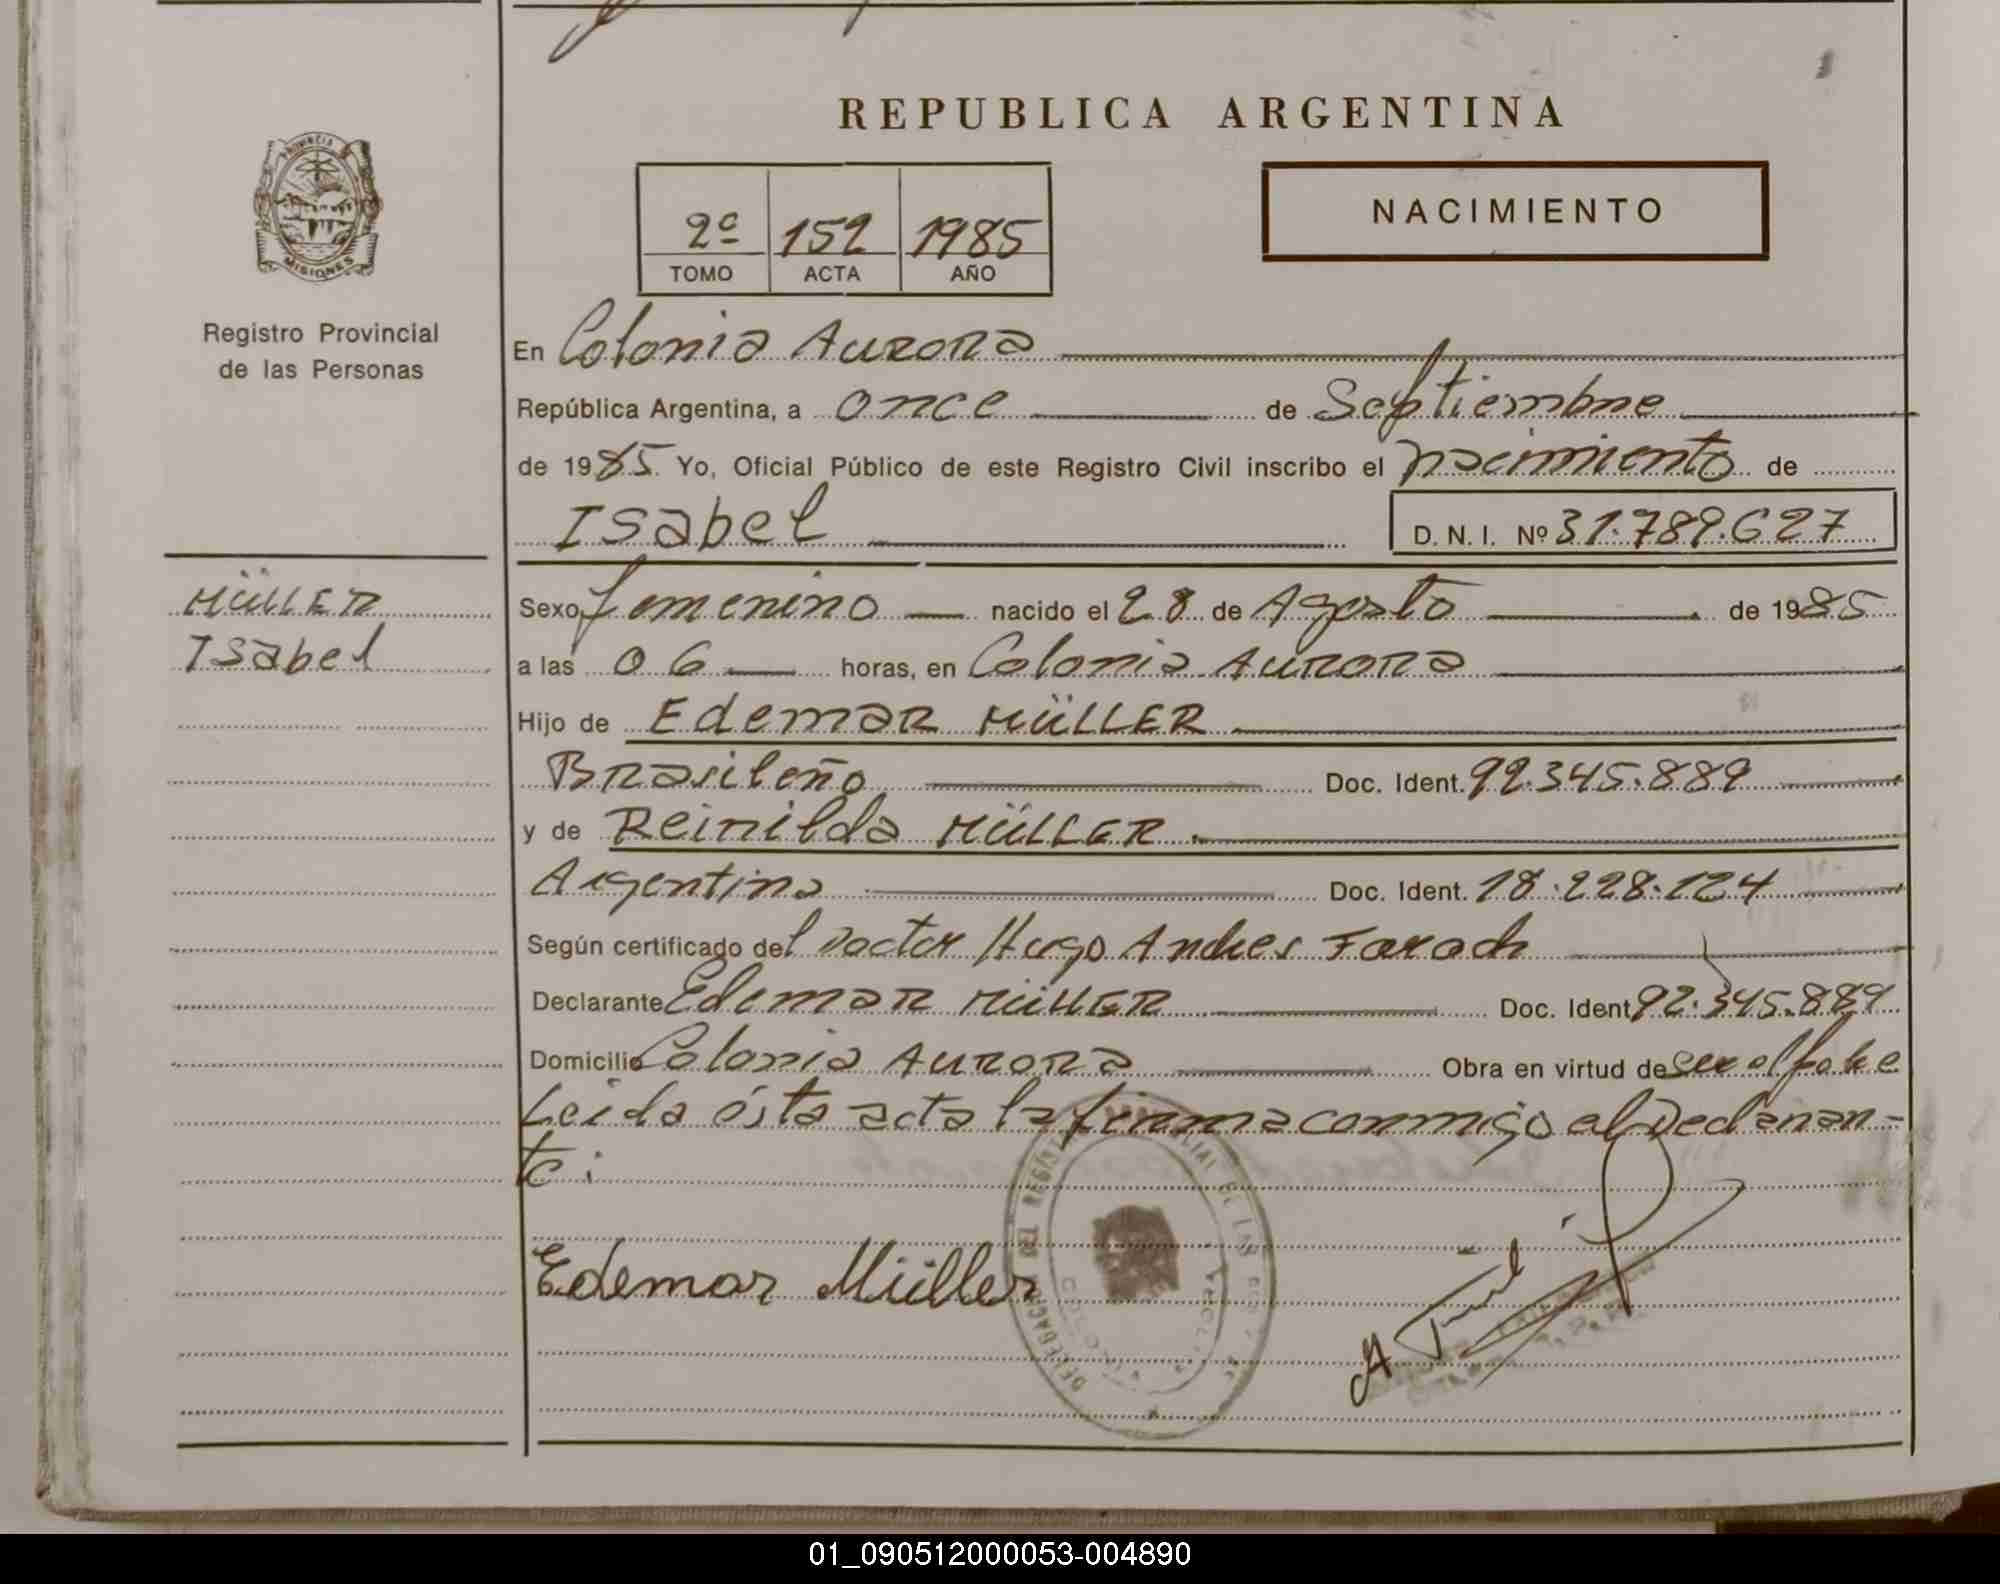 REPUBLICA ARGENTINA
PROVINCIA DE
MISIONES
Registro Provincial
de las Personas
2º 152 1985
TOMO ACTA AÑO
NACIMIENTO
En Colonia Aurora
República Argentina, a once de Septiembre
de 1985. Yo, Oficial Público de este Registro Civil inscribo el nacimiento de
Isabel D. N. I. Nº 31.789.627
MÜLLER
Isabel
Sexo femenino nacido el 28 de Agosto de 1985
a las 06 horas, en Colonia Aurora
Hijo de Edemar MÜLLER
Brasileño Doc. Ident. 92.345.889
y de Reinilda MÜLLER.
Argentina Doc. Ident. 18.228.124
Según certificado del Doctor Hugo Andres Farach
Declarante Edemar MÜLLER Doc. Ident 92.345.889
Domicilio Colonia Aurora Obra en virtud de ser el padre
Leida ésta acta la firma conmigo el Declaran-
te:
Edemar Müller
01_090512000053-004890